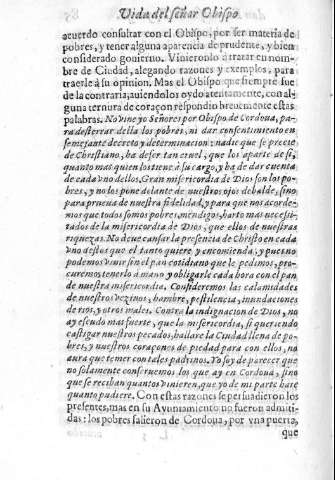 Vida del señor Obispo
acuerdo consultar con el Obispo, por ser materia de
pobres, y tener alguna aparencia de prudente, y bien
considerado gouierno. Vinieronlo à tratar en nom-
bre de Ciudad, alegando razones y exemplos, para
traerle à su opinion. Mas el Obispo que siempre fue
de la contraria, auiendolos oydo atentamente, con al-
guna ternura de coraçon respondio breuemente estas
palabras. No vine yo Señores por Obispo de Cordoua, pa-
ra desterrar della los pobres, ni dar consentimiento en
semejante decreto y determinacion: nadie que se precie
de Christiano, ha de ser tan cruel, que los aparte de si,
quanto mas quien los tiene a su cargo, y ha de dar cuenta
de cada vno dellos. Gran misericordia de Dios son los po-
bres, y no los pone delante de nuestros ojos debalde, sino
para prueua de nuestra fidelidad, y para que nos acorde-
mos que todos somos pobres, mendigos, harto mas necesi-
tados de la misericordia de Dios, que ellos de nuestras
riquezas. No deue cansar la presencia de Christo en cada
vno destos que el tanto quiere y encomienda, y pues no
podemos viuir sin el pan cotidiano que le pedimos, pro-
curemos tenerlo à mano y obligarle cada hora con el pan
de nuestra misericordia. Consideremos las calamidades
de nuestros vezinos, hambre, pestilencia, inundaciones
de rios, y otros males. Contra la indignacion de Dios, no
ay escudo mas fuerte, que la misericordia, si queriendo
castigar nuestros pecados, hallare la Ciudad llena de po-
bres, y nuestros coraçones de piedad para con ellos, no
aura que temer con tales padrinos. Yo soy de parecer que
no solamente conseruemos los que ay en Cordoua, sino
que se reciban quantos vinieren, que yo de mi parte harè
quanto pudiere. Con estas razones se persuadieron los
presentes, mas en su Ayuntamiento no fueron admiti-
das: los pobres salieron de Cordoua, por vna puerta,
que